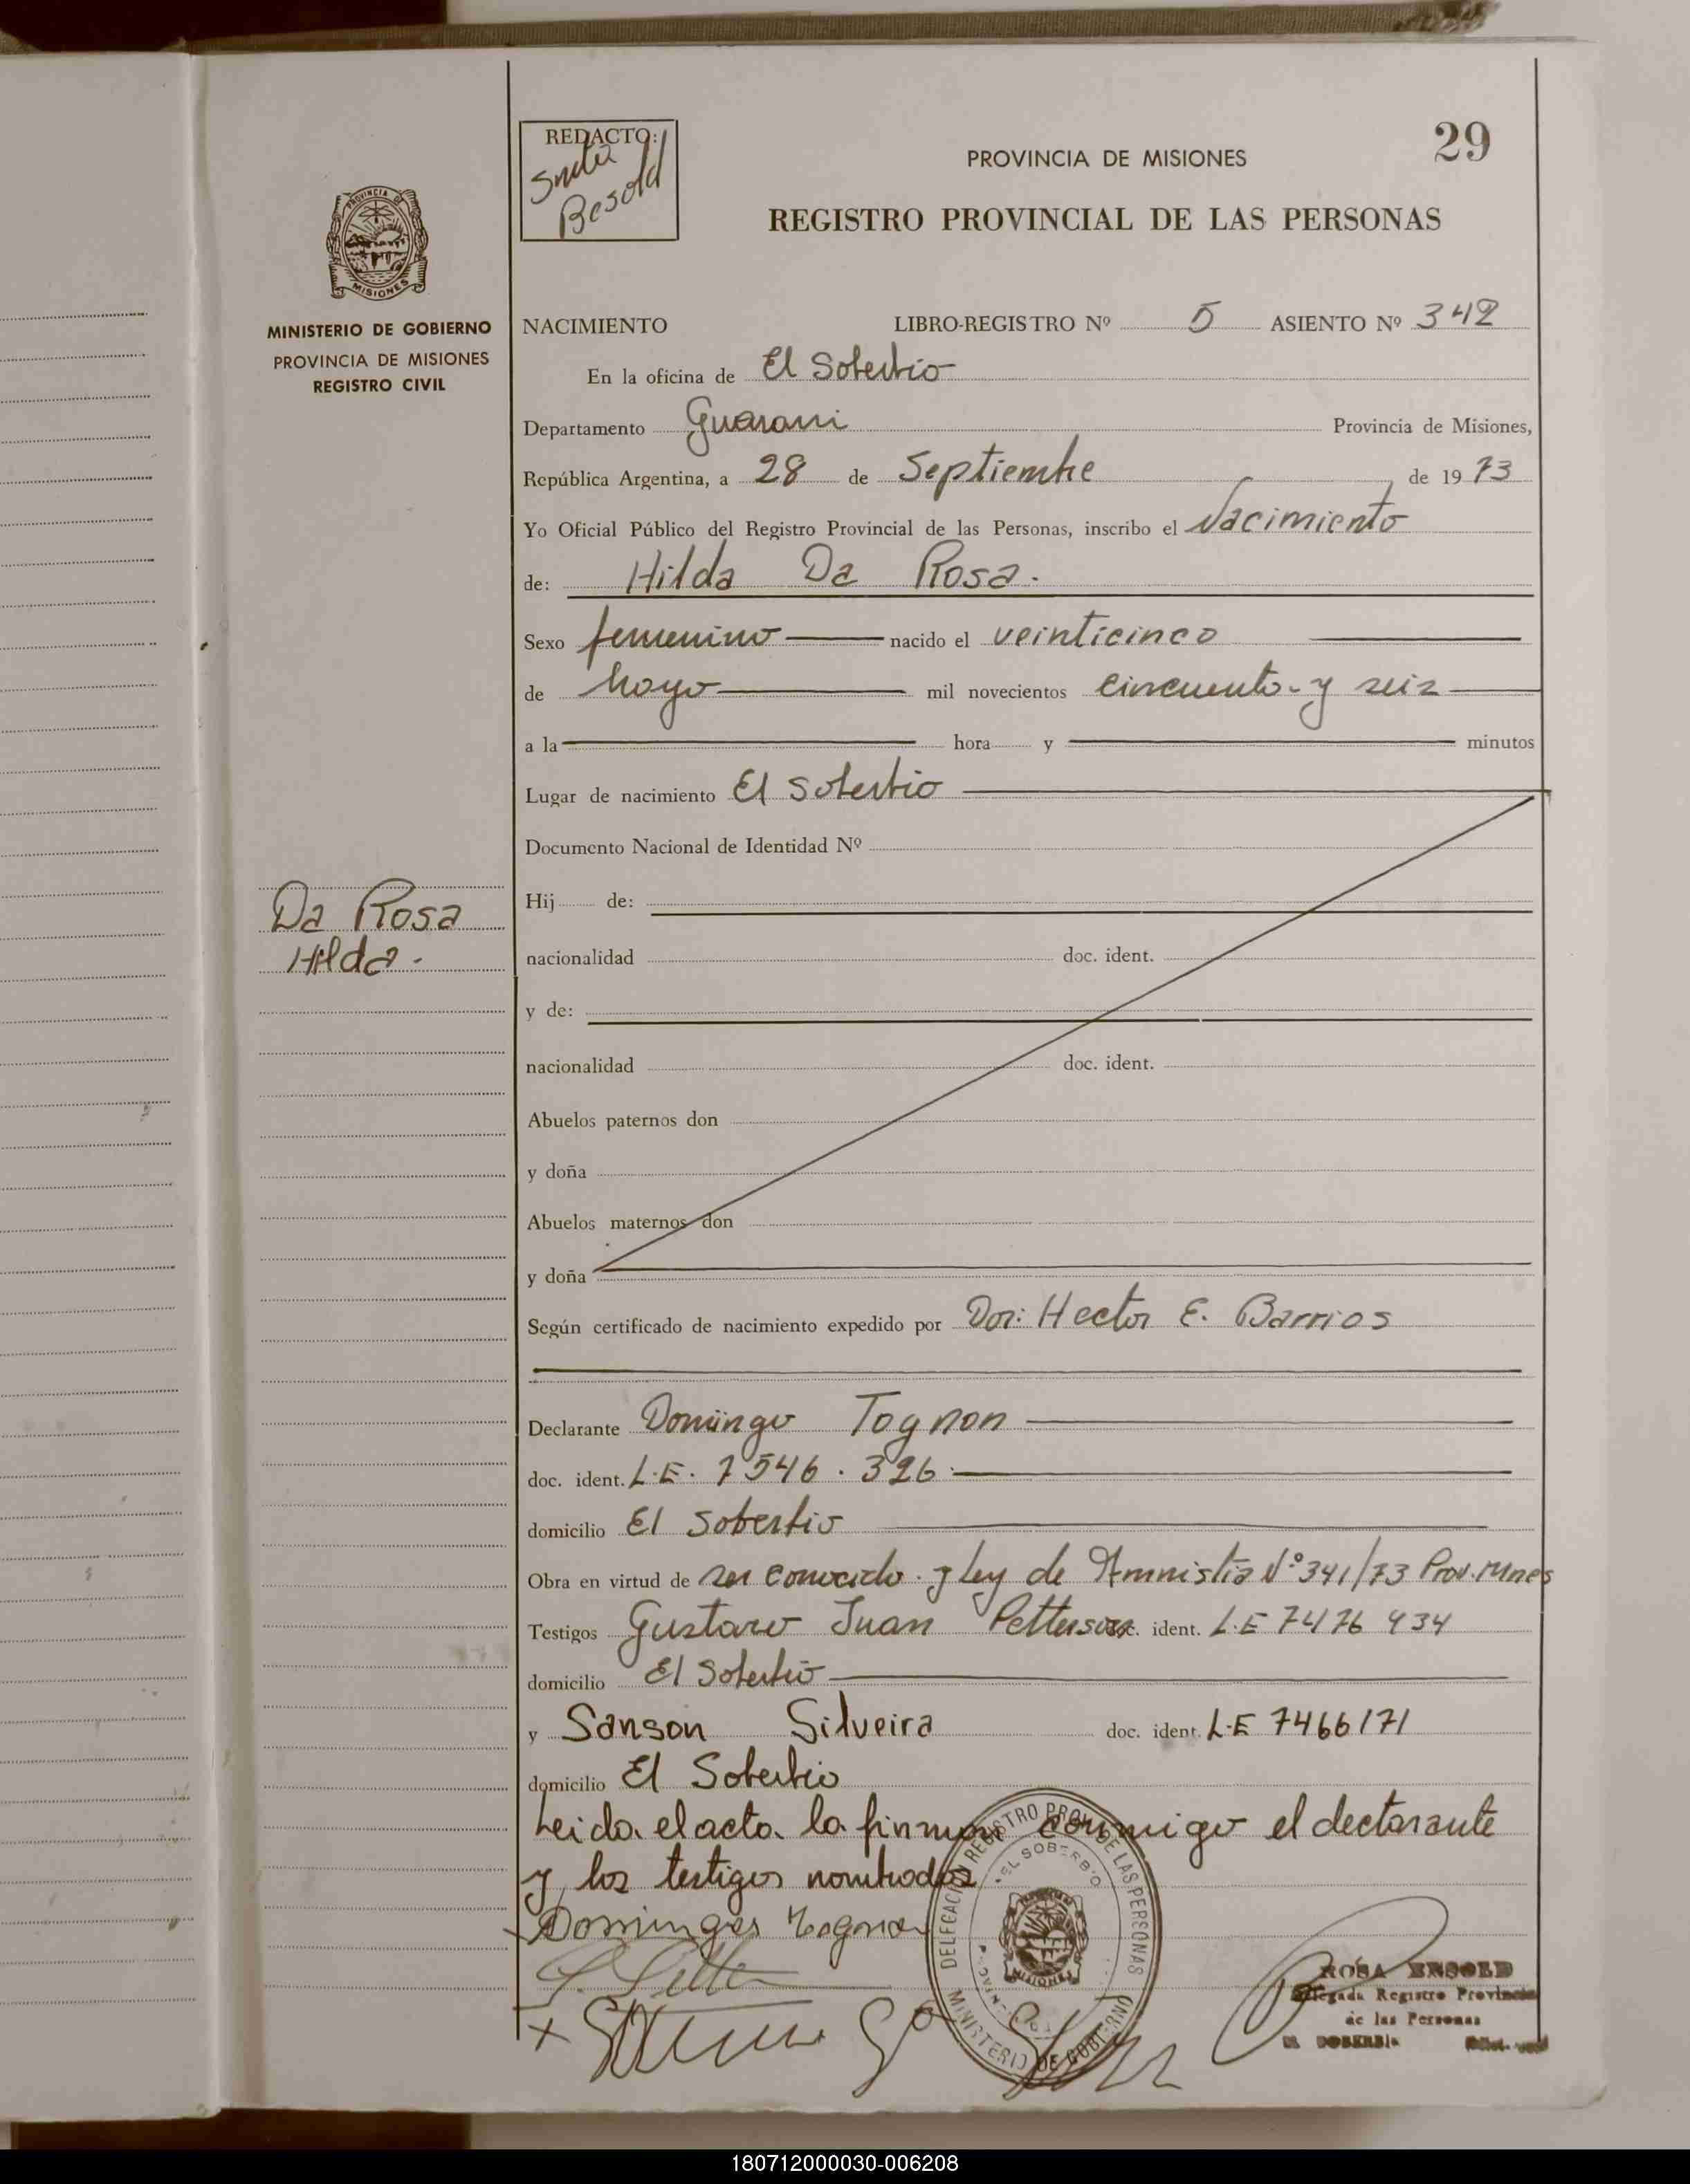 REDACTO:
Besold
29
PROVINCIA DE MISIONES
REGISTRO PROVINCIAL DE LAS PERSONAS
PROVINCIA
MISIONES
MINISTERIO DE GOBIERNO
PROVINCIA DE MISIONES
REGISTRO CIVIL
NACIMIENTO LIBRO-REGISTRO Nº 5 ASIENTO Nº 342
En la oficina de El Soberbio
Departamento Guarani Provincia de Misiones,
República Argentina, a 28 de Septiembre de 1973
Yo Oficial Público del Registro Provincial de las Personas, inscribo el Nacimiento
de: Hilda Da Rosa.
Sexo femenino nacido el veinticinco
de Mayo mil novecientos cincuenta y seis
a la hora y minutos
Lugar de nacimiento El Soberbio
Documento Nacional de Identidad Nº
Da Rosa
Hilda.
Hij de:
nacionalidad doc. ident.
y de:
nacionalidad doc. ident.
Abuelos paternos don
y doña
Abuelos maternos don
y doña
Según certificado de nacimiento expedido por Dor: Hector E. Barrios
Declarante Domingo Tognon
doc. ident. L.E. 7546.326
domicilio El Soberbio
Obra en virtud de ser conocido y Ley de Amnistia Nº 341/73 Prov. Mnes
Testigos Gustavo Juan doc. ident. L.E 7476 934
domicilio El Soberbio
y Sanson Silveira doc. ident. L.E 7466171
domicilio El Soberbio
Leida el acta la firman conmigo el declarante
y los testigos nombrados
DELEGACION REGISTRO PROV. DE LAS PERSONAS
EL SOBERBIO
MISIONES
MINISTERIO DE GOBIERNO
ROSA BESOLD
Delegada Registro Provincial
de las Personas
EL SOBERBIO
180712000030-006208